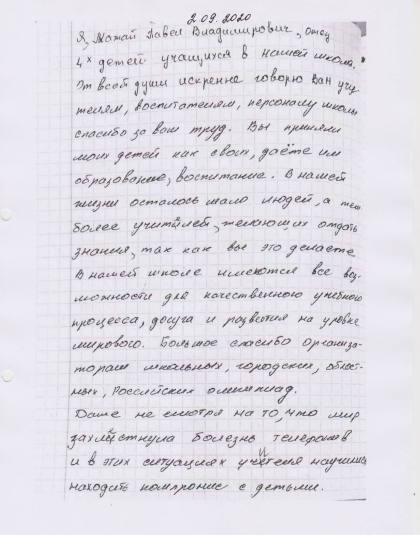 2.09.2020
Я, Можай Павел Владимирович, отец
4х детей учащихся в нашей школе.
От всей души искренне говорю Вам учи-
телям, воспитателям, персоналу школы
спасибо за ваш труд. Вы приняли
моих детей как своих, даёте им
образование, воспитание. В нашей
жизни осталось мало людей, а тем
более учителей, желающих отдать
знания, так как вы это делаете
В нашей школе имеются все воз-
можности для качественного учебного
процесса, досуга и развития на уровне
мирового. Большое спасибо организа-
торам школьных, городских, област-
ных, Российских олимпиад.
Даже не смотря на то, что мир
захлестнула болезнь телефонов
и в этих ситуациях учителя научились
находить компромис с детьми.